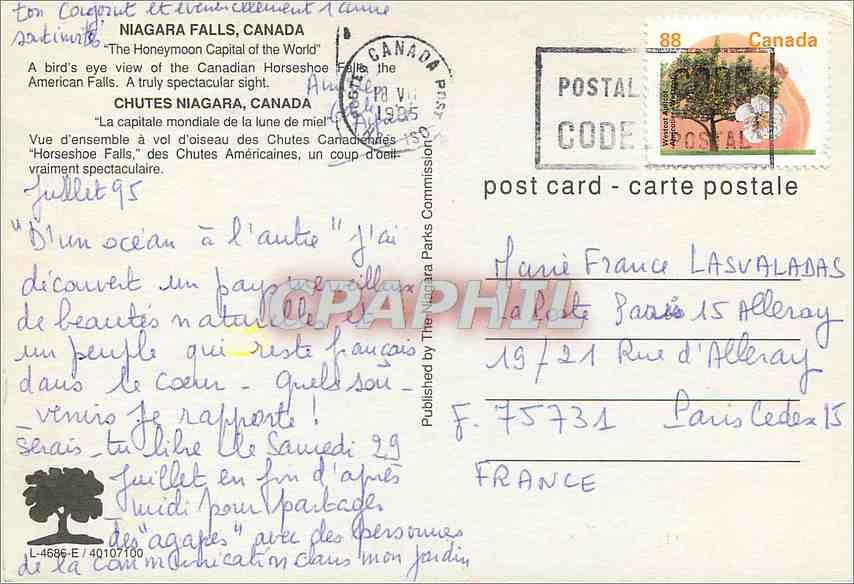 ton conjoint et éventuellement l'amie
sont invités
NIAGARA FALLS, CANADA
"The Honeymoon Capital of the World"
A bird's eye view of the Canadian Horseshoe Falls, the
American Falls. A truly spectacular sight.
CHUTES NIAGARA, CANADA
"La capitale mondiale de la lune de miel"
Vue d'ensemble à vol d'oiseau des Chutes Canadiennes
"Horseshoe Falls," des Chutes Américaines, un coup d'oeil
vraiment spectaculaire.
Juillet 95
"D'un océan à l'autre" j'ai
découvert un pays merveilleux
de beautés naturelles et
un peuple qui reste français
dans le coeur - Quels sou-
venirs je rapporte !
Serais-tu libre le Samedi 29
Juillet en fin d'après
midi pour partager
des "agapes" avec des personnes
de la communication dans mon jardin
L-4686-E / 40107100
Published by The Niagara Parks Commission
CANADA
POST
1995
POSTAL CODE
CODE POSTAL
88 Canada
Westcot Apricot
post card - carte postale
Marie France LASVALADAS
La Poste Paris 15 Alleray
19/21 Rue d'Alleray
F. 75731 Paris Cedex 15
FRANCE
CPAPHIL